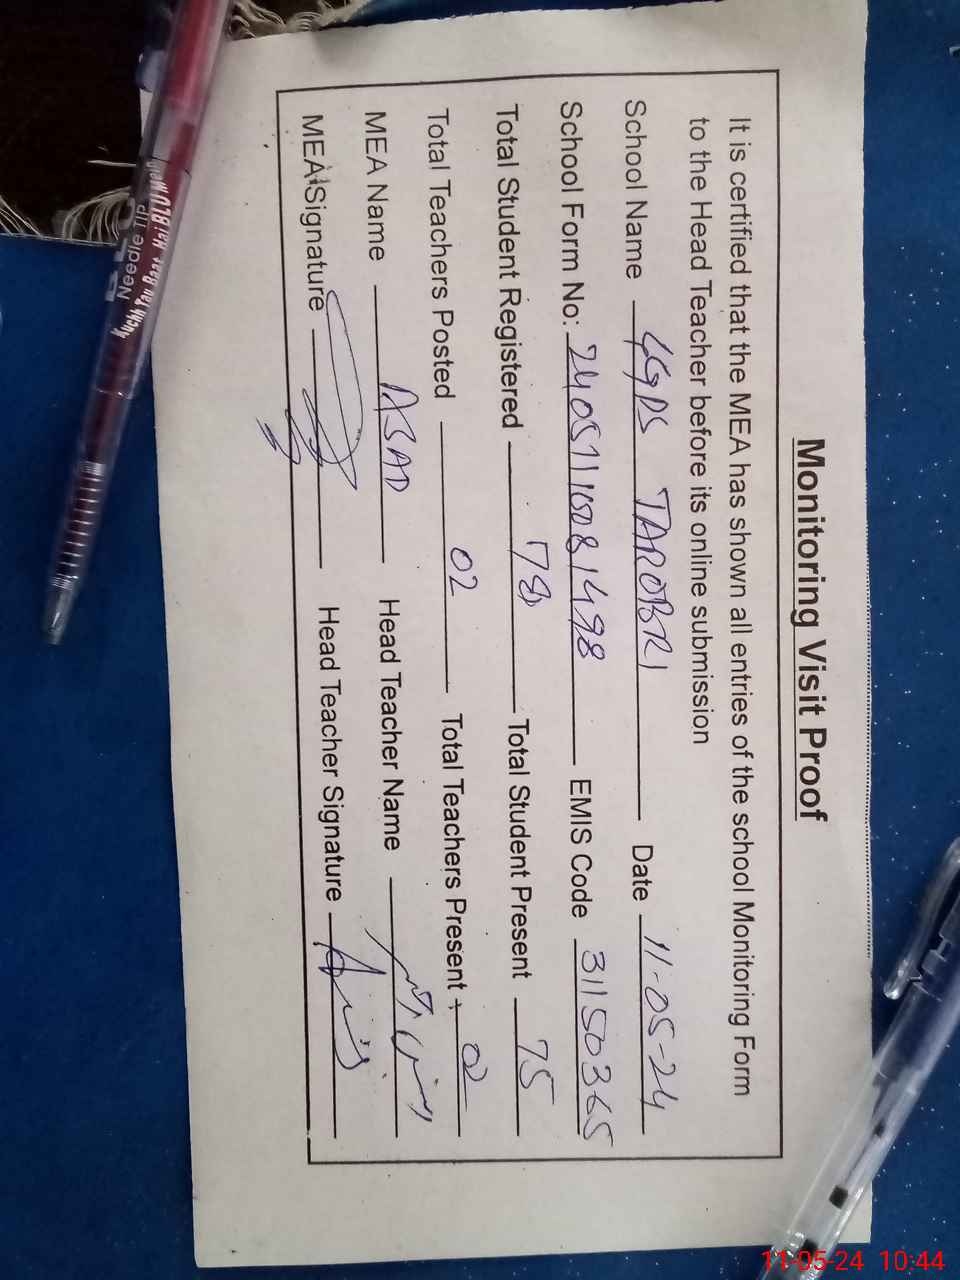 Monitoring Visit Proof
It is certified that the MEA has shown all entries of the school Monitoring Form
to the Head Teacher before its online submission
School Name GGPS TAROBRI Date 11-05-24
School Form No: 24051110081498 EMIS Code 31150365
Total Student Registered 78 Total Student Present 75
Total Teachers Posted 02 Total Teachers Present 02
MEA Name ASAD Head Teacher Name
MEA Signature Head Teacher Signature
Needle TIP
Kuchh Tau Baat Hai
11-05-24 10:44